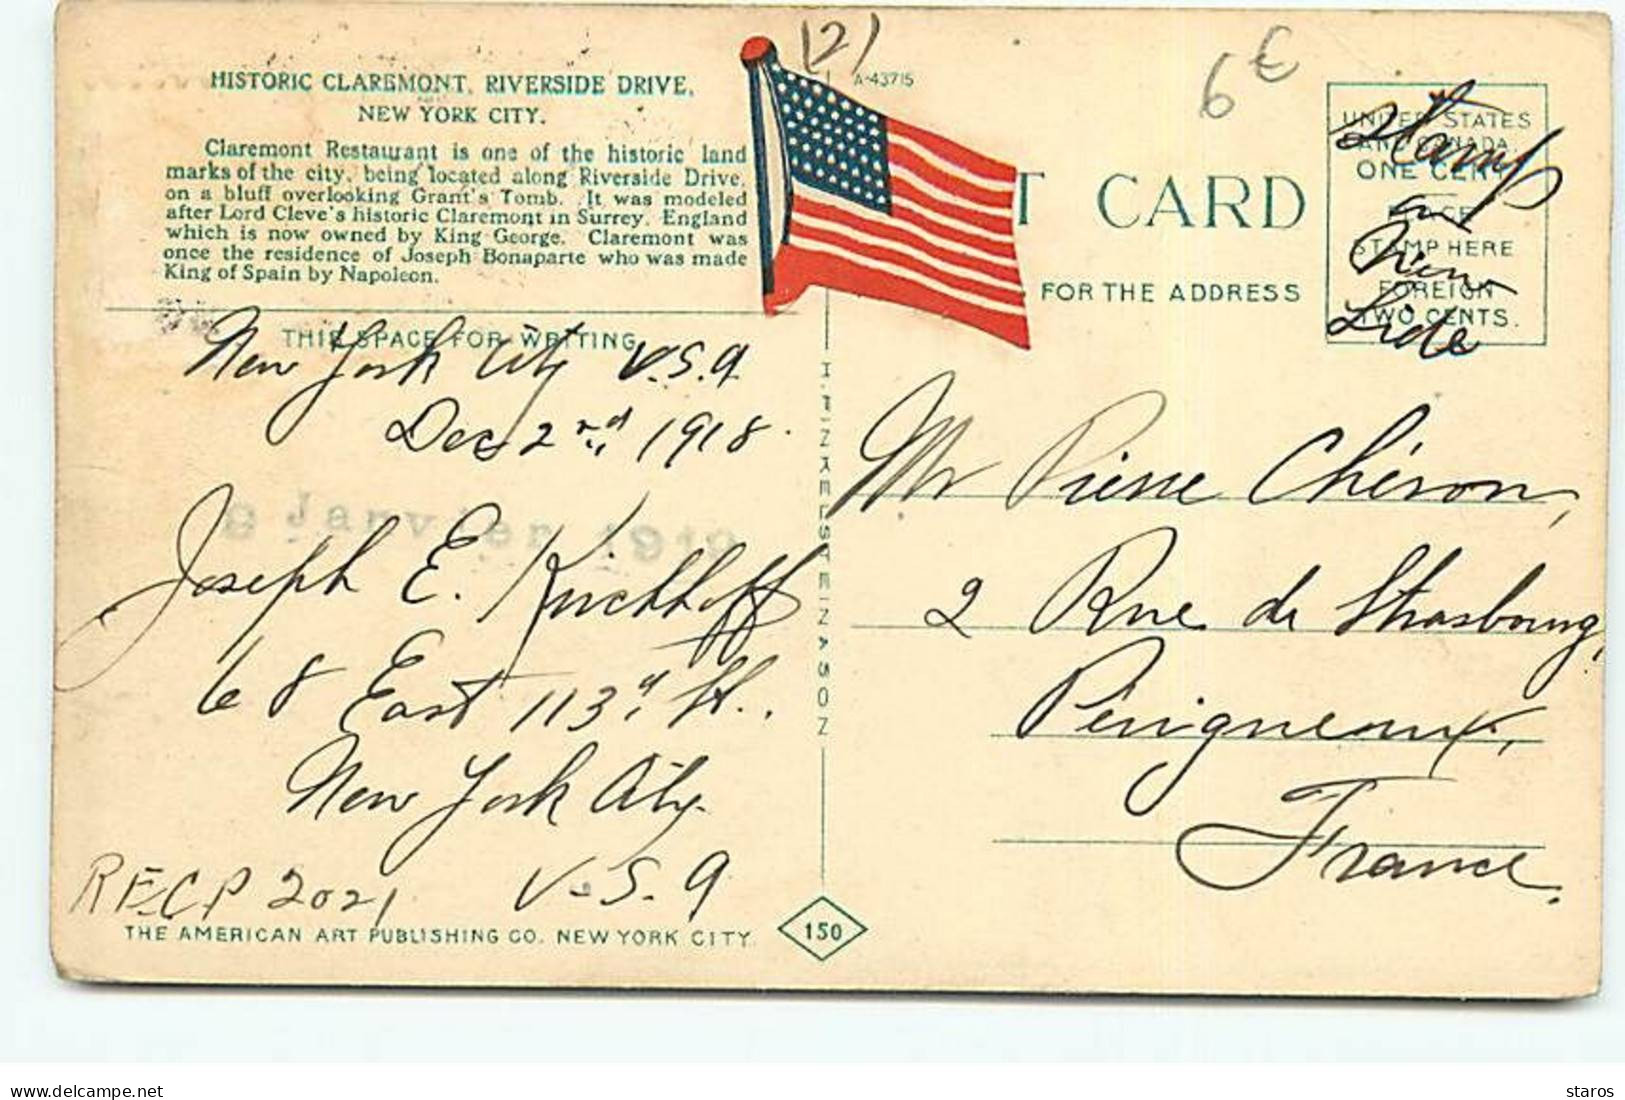 (2)
6€
A-43715
HISTORIC CLAREMONT, RIVERSIDE DRIVE,
NEW YORK CITY.
Claremont Restaurant is one of the historic land
marks of the city, being located along Riverside Drive,
on a bluff overlooking Grant's Tomb. It was modeled
after Lord Cleve's historic Claremont in Surrey, England
which is now owned by King George. Claremont was
once the residence of Joseph Bonaparte who was made
King of Spain by Napoleon.
THIS SPACE FOR WRITING
New York City U.S.A
Dec 2nd 1918.
9 Janvier 1919
Joseph E. Kirchhoff
68 East 113th St.,
New York City.
U.S.A
RECP 2021
THE AMERICAN ART PUBLISHING CO. NEW YORK CITY.
H. FINKELSTEIN & SON
150
T CARD
FOR THE ADDRESS
UNITED STATES
AND CANADA.
ONE CENT
PLACE
STAMP HERE
FOREIGN
TWO CENTS.
Stamp
on
View
Side
Mr Pierre Chéron,
2 Rue de Strasbourg,
Périgueux,
France.
staros
delcampe.net